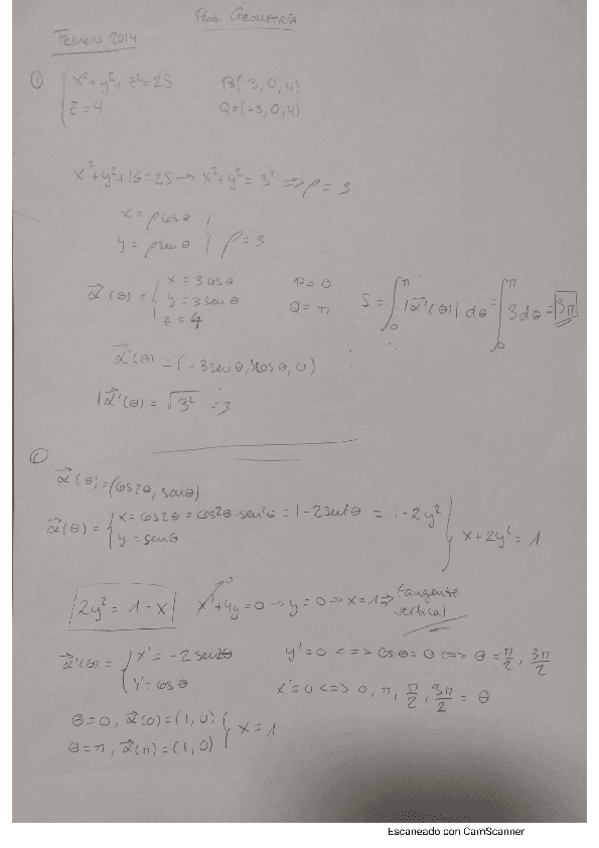 Prob. GEOMETRÍA
Febrero 2014
① { x² + y² + z² = 25    P(3, 0, 4)
z = 4    Q = (-3, 0, 4)
x² + y² + 16 = 25 → x² + y² = 3² ⇒ ρ = 3
x = ρ cos θ
y = ρ sen θ } ρ = 3
α⃗(θ) = { x = 3 cos θ    P = 0
y = 3 sen θ    Q = π    S = ∫₀^π |α⃗'(θ)| dθ = ∫₀^π 3 dθ = 3π
z = 4
α⃗'(θ) = (-3 sen θ, 3 cos θ, 0)
|α⃗'(θ)| = √3² = 3
②
α⃗(θ) = (cos 2θ, sen θ)
α⃗(θ) = { x = cos 2θ = cos²θ - sen²θ = 1 - 2 sen²θ = 1 - 2y²
y = sen θ } x + 2y² = 1
2y² = 1 - x    x' + 4y = 0 → y = 0 → x = 1 ⇒ tangente
vertical
α⃗'(θ) = { x' = -2 sen 2θ    y' = 0 ⇔ cos θ = 0 ⇔ θ = π/2, 3π/2
y' = cos θ    x' = 0 ⇔ 0, π, π/2, 3π/2 = θ
θ = 0, α⃗(0) = (1, 0)
θ = π, α⃗(π) = (1, 0) } x = 1
Escaneado con CamScanner